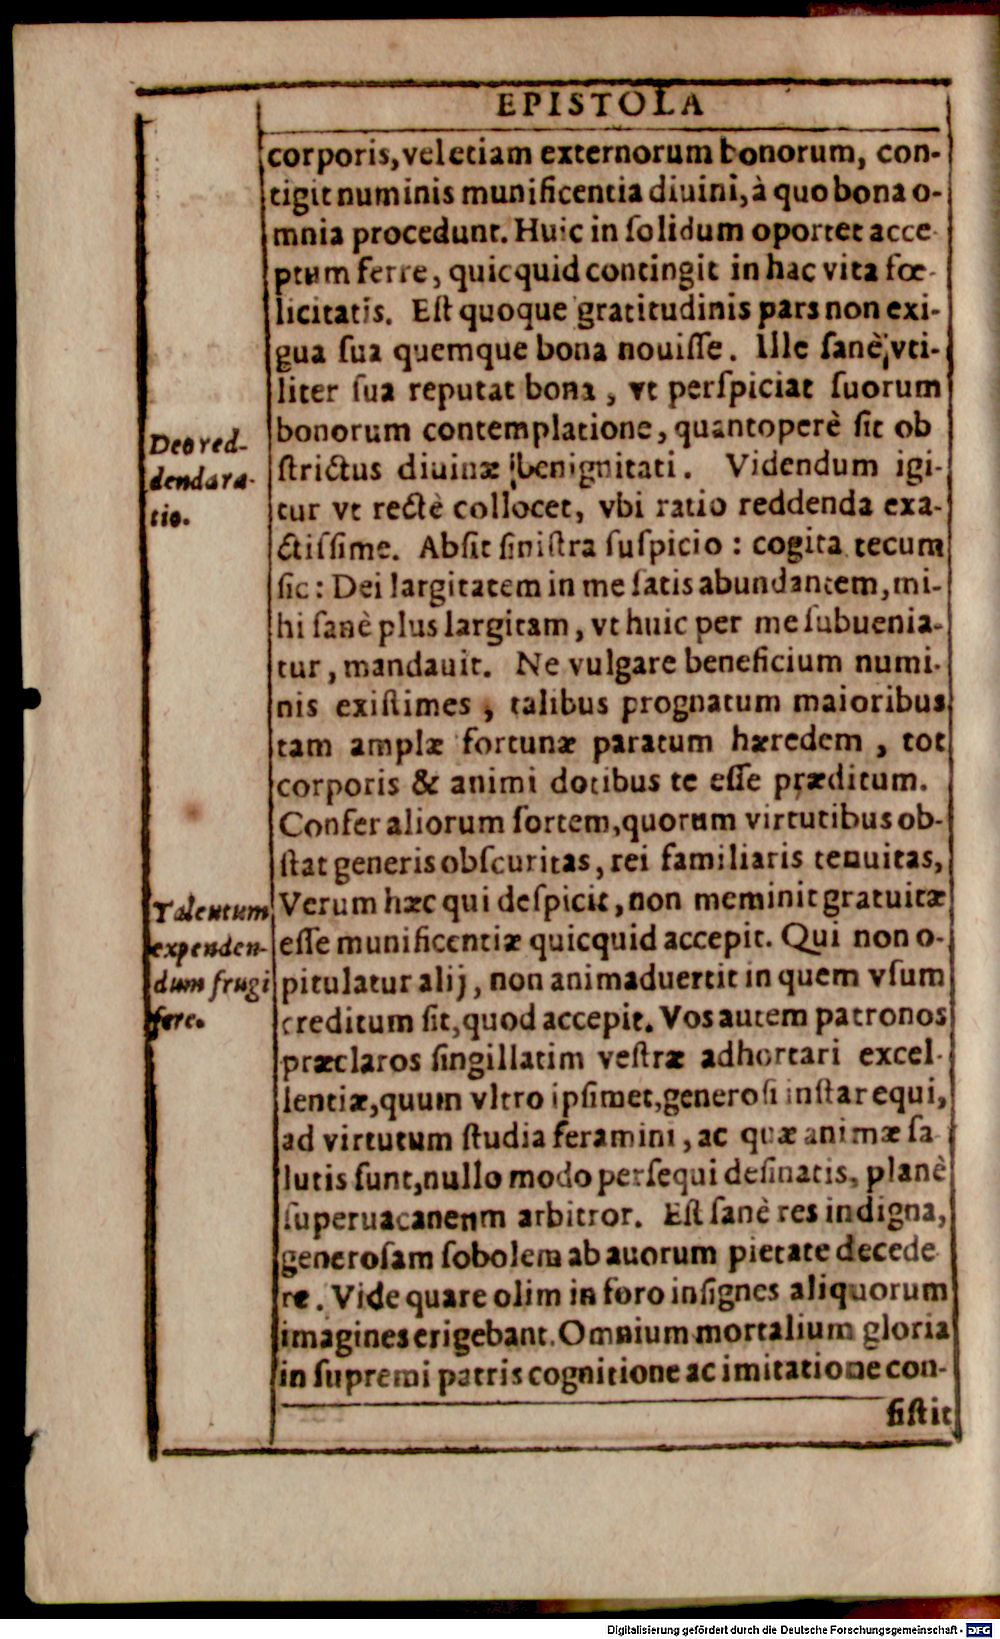 EPISTOLA
corporis, vel etiam externorum bonorum, con-
tigit numinis munificentia diuini, à quo bona o-
mnia procedunt. Huic in ſolidum oportet acce-
ptum ferre, quicquid contingit in hac vita fœ-
licitatis. Eſt quoque gratitudinis pars non exi-
gua ſua quemque bona nouiſſe. Ille ſanè vti-
liter ſua reputat bona, vt perſpiciat ſuorum
bonorum contemplatione, quantoperè ſit ob
ſtrictus diuinæ benignitati. Videndum igi-
tur vt rectè collocet, vbi ratio reddenda exa-
ctiſſime. Abſit ſiniſtra ſuſpicio : cogita tecum
ſic : Dei largitatem in me ſatis abundantem, mi-
hi ſanè plus largitam, vt huic per me ſubuenia-
tur, mandauit. Ne vulgare beneficium numi-
nis exiſtimes, talibus prognatum maioribus
tam amplæ fortunæ paratum hæredem, tot
corporis & animi dotibus te eſſe præditum.
Confer aliorum ſortem, quorum virtutibus ob-
ſtat generis obſcuritas, rei familiaris tenuitas,
Verum hæc qui deſpicit, non meminit gratuitæ
eſſe munificentiæ quicquid accepit. Qui non o-
pitulatur alij, non animaduertit in quem vſum
creditum ſit, quod accepit. Vos autem patronos
præclaros ſingillatim veſtræ adhortari excel-
lentiæ, quum vltro ipſimet, generoſi inſtar equi,
ad virtutum ſtudia feramini, ac quæ animæ ſa-
lutis ſunt, nullo modo perſequi deſinatis, planè
ſuperuacanenm arbitror. Eſt ſanè res indigna,
generoſam ſobolem ab auorum pietate decede
re. Vide quare olim in foro inſignes aliquorum
imagines erigebant. Omnium mortalium gloria
in ſupremi patris cognitione ac imitatione con-
ſiſtit
Deo red-
denda ra-
tio.
Talentum
expenden-
dum frugi
fere.
Digitalisierung gefördert durch die Deutsche Forschungsgemeinschaft - DFG